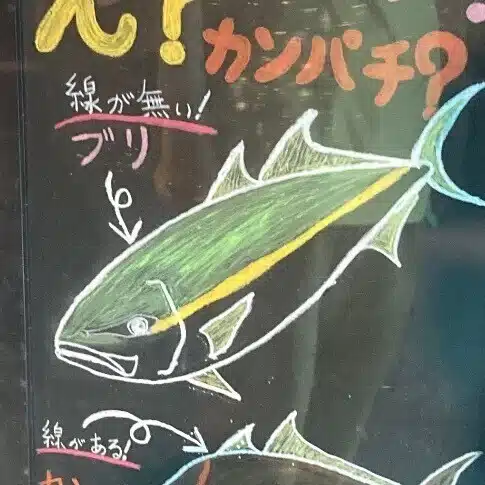 ん!
カンパチ?
線が無い!
ブリ
線がある!
カン